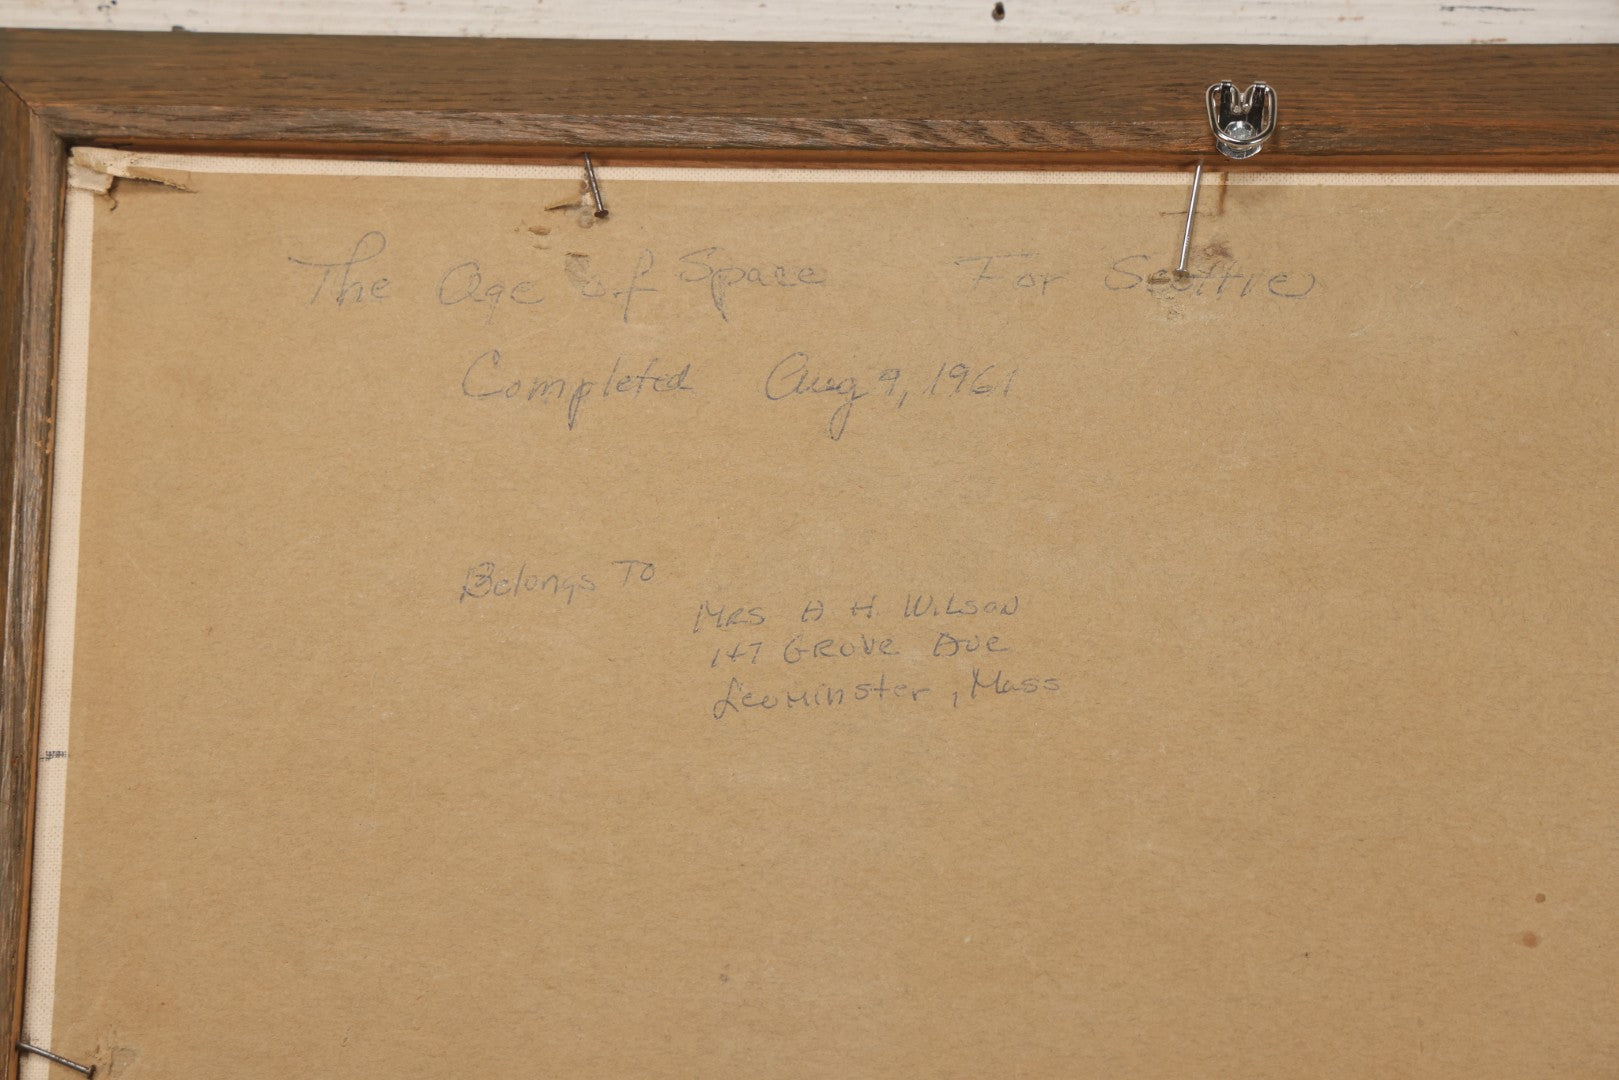 The Age of Space For Seattle
Completed Aug 9, 1961
Belongs To
MRS A H WILSON
147 GROVE AVE
Leominster, Mass